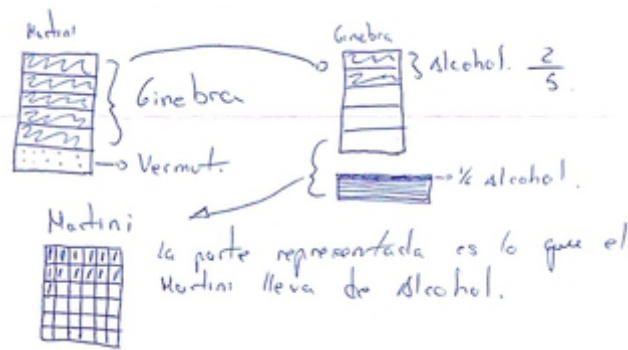 Martini
Ginebra
Ginebra
Alcohol. 2/5
Vermut.
Alcohol.
Martini
la parte representada es lo que el
Martini lleva de Alcohol.